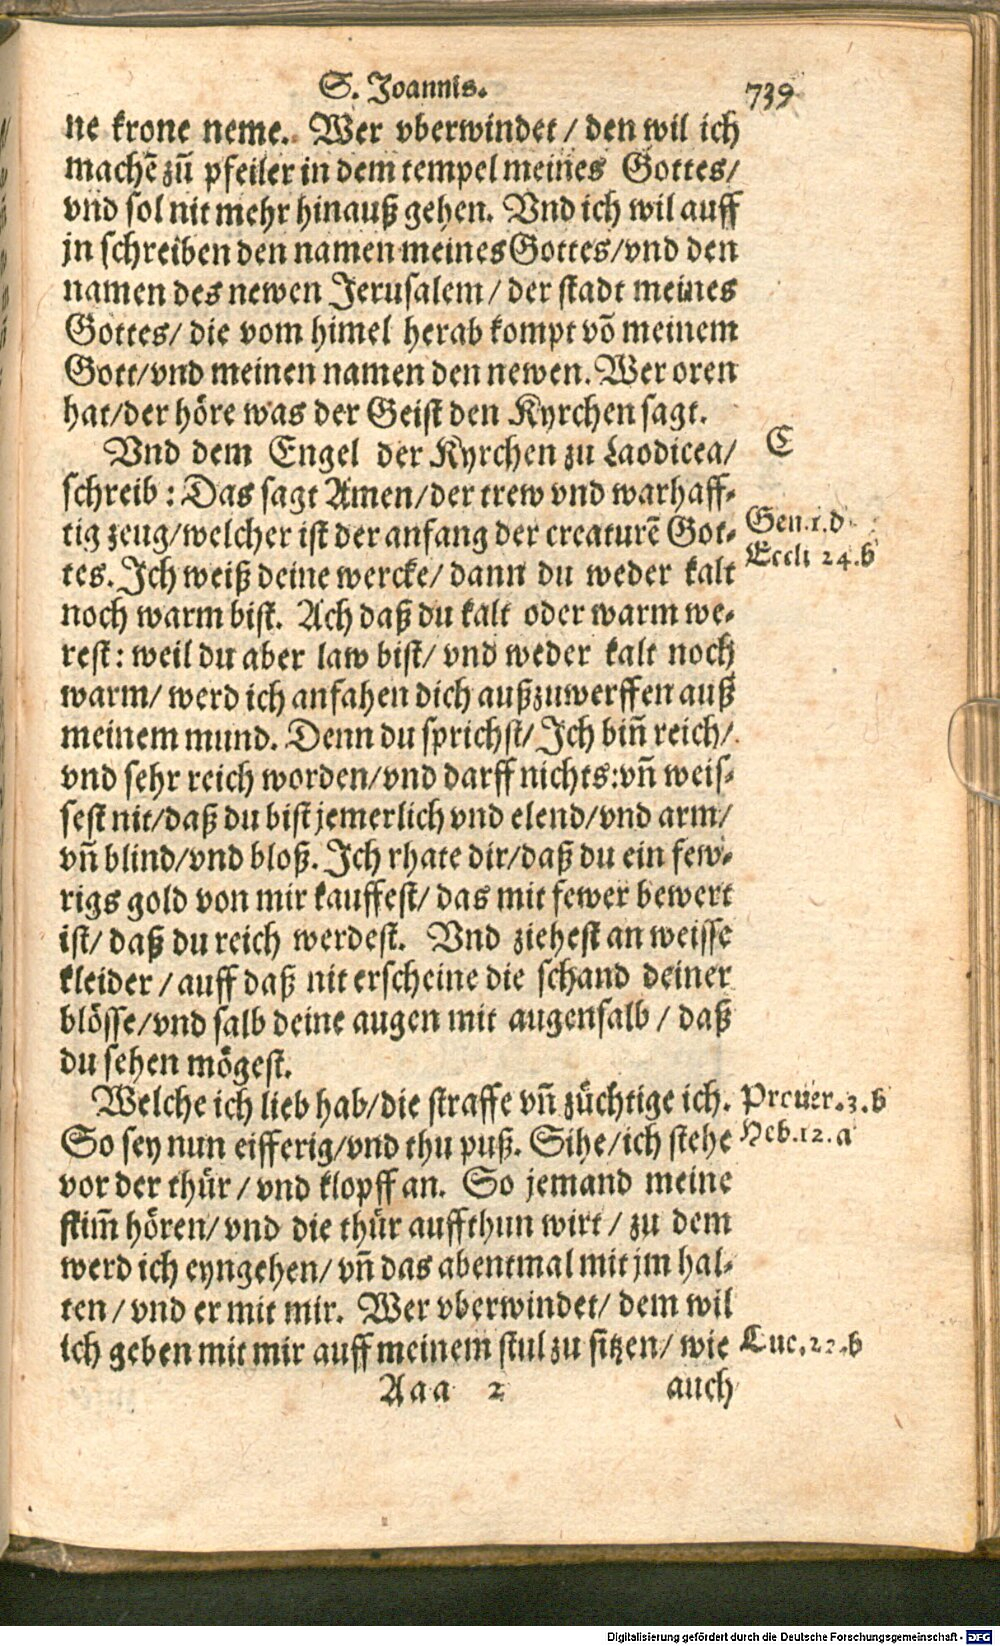 S. Joannis.
739
ne krone neme. Wer vberwindet / den wil ich
machē zū pfeiler in dem tempel meines Gottes/
vnd sol nit mehr hinauß gehen. Vnd ich wil auff
jn schreiben den namen meines Gottes/vnd den
namen des newen Jerusalem / der stadt meines
Gottes/ die vom himel herab kompt vō meinem
Gott/vnd meinen namen den newen. Wer oren
hat/der höre was der Geist den Kyrchen sagt.
Vnd dem Engel der Kyrchen zu Laodicea/
C
schreib : Das sagt Amen/der trew vnd warhaff-
tig zeug/welcher ist der anfang der creaturē Got-
Gen.1.d
tes. Ich weiß deine wercke/ dann du weder kalt
Eccli 24.b
noch warm bist. Ach daß du kalt oder warm we-
rest: weil du aber law bist/ vnd weder kalt noch
warm/ werd ich anfahen dich außzuwerffen auß
meinem mund. Denn du sprichst/ Ich biñ reich/
vnd sehr reich worden/vnd darff nichts:vñ weis-
sest nit/daß du bist jemerlich vnd elend/vnd arm/
vñ blind/vnd bloß. Ich rhate dir/daß du ein few-
rigs gold von mir kauffest/ das mit fewer bewert
ist/ daß du reich werdest. Vnd ziehest an weisse
kleider / auff daß nit erscheine die schand deiner
blösse/vnd salb deine augen mit augensalb / daß
du sehen mögest.
Welche ich lieb hab/die straffe vñ züchtige ich.
Prouer.3.b
So sey nun eifferig/vnd thu puß. Sihe/ich stehe
Heb.12.a
vor der thür / vnd klopff an. So jemand meine
stim̄ hören/ vnd die thür auffthun wirt / zu dem
werd ich eyngehen/ vñ das abentmal mit jm hal-
ten / vnd er mit mir. Wer vberwindet/ dem wil
ich geben mit mir auff meinem stul zu sitzen/ wie
Luc.22.b
Aaa 2
auch
Digitalisierung gefördert durch die Deutsche Forschungsgemeinschaft - DFG